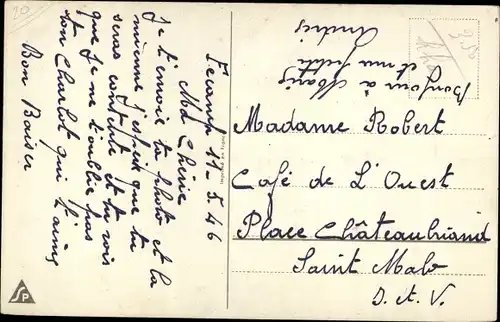 20
Fécamp 17-5.46
Ma Chérie
Je t'envoie ta photo et la
mienne j'espère que tu
seras contente et tu vois
que je ne t'oublie pas
ton Charlot qui t'aime
Bon Baiser
Bonjour à Marie
et ma petite
Andrée
Madame Robert
Café de L'Ouest
Place Châteaubriand
Saint Malo
I. et. V.
SP